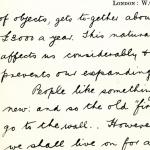 LONDON: W.
of objects, gets together about
£3000 a year. This natura
affects us considerably &
prevents our expanding
People like something
new: and so the old 'fir
go to the wall.. However
we shall live on for a